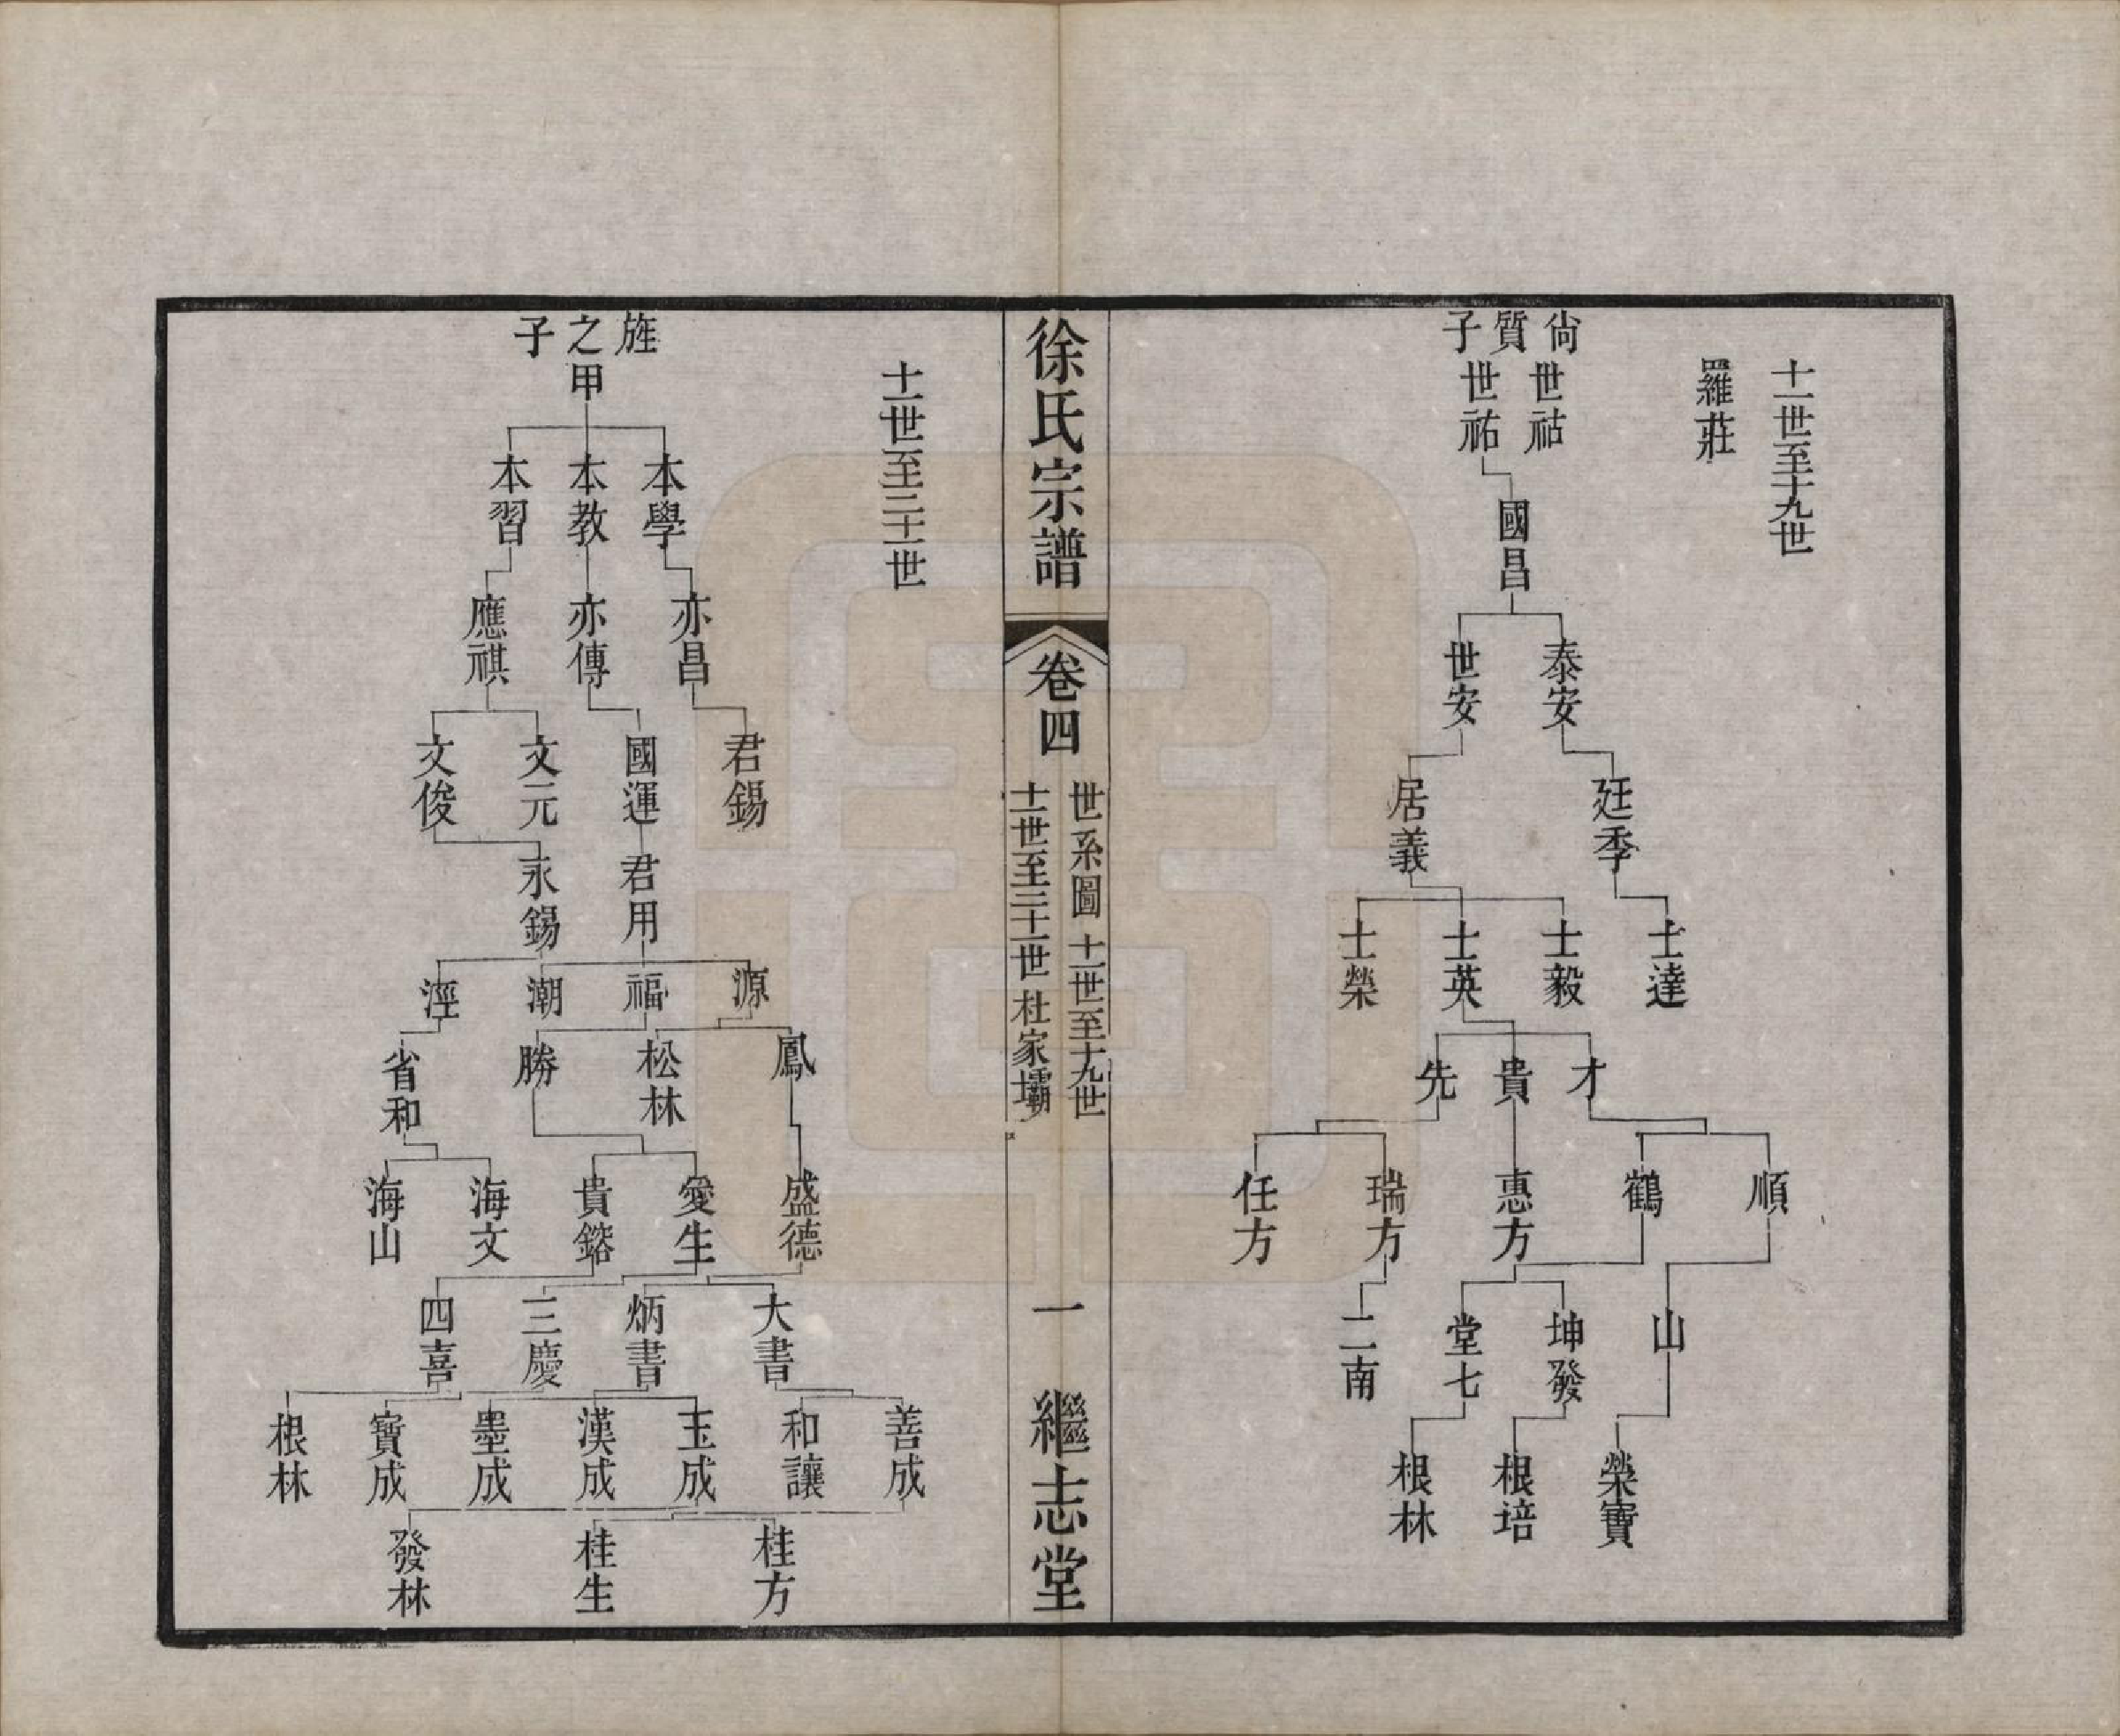 十一世至十九世
羅莊
尙質子
世祜
世祐
國昌
泰安
世安
廷季
居義
士達
士毅
士英
士榮
才
貴
先
順
鶴
惠方
瑞方
任方
山
坤發
堂七
二南
榮寶
根培
根林
徐氏宗譜
卷四
世系圖 十一世至十九世
十一世至二十一世 杜家壩
一
繼志堂
十一世至二十一世
旌之子
甲
本學
本教
本習
亦昌
亦傳
應祺
君錫
國運
文元
文俊
君用
永錫
源
福
潮
涇
鳳
松林
勝
省和
盛德
愛生
貴鎔
海文
海山
大書
炳書
三慶
四喜
善成
和讓
玉成
漢成
墨成
寶成
根林
桂方
桂生
發林